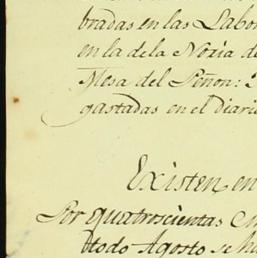 bradas en las Labor
en la dela Noria de
Mesa del Señor:
gastadas en el diari
Existen en
Por quatrocientas
todo Agosto se ha